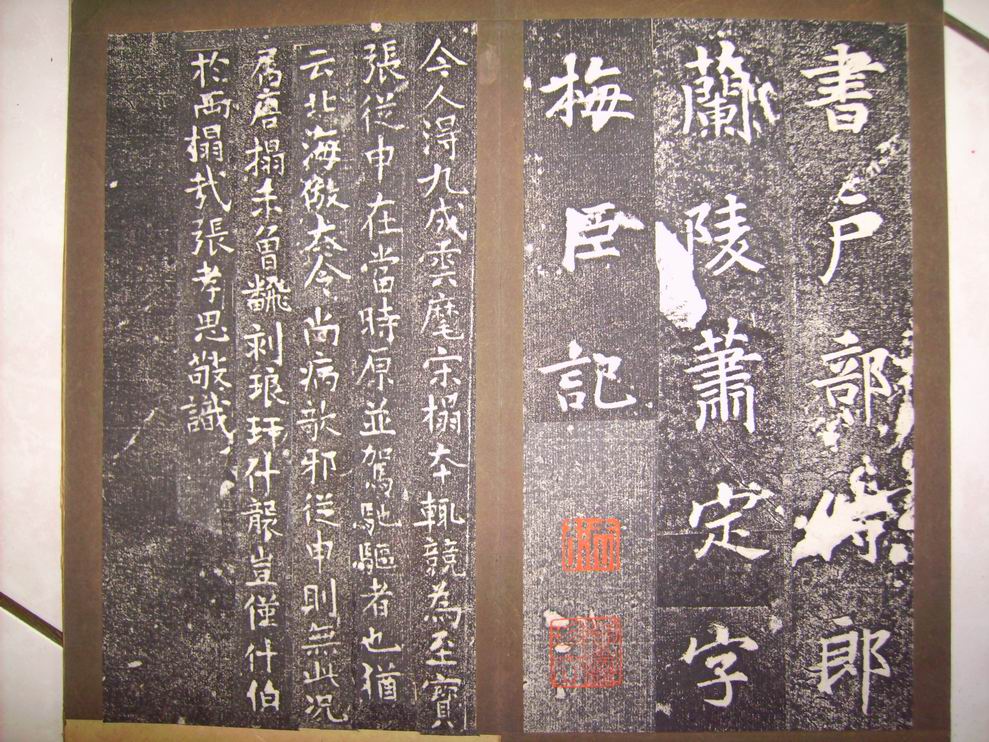 書戶部侍郎
蘭陵蕭定字
梅臣記
今人得九成雲麾宋榻本輒競為至寶
張從申在當時原並駕馳驅者也猶
云北海倣大令尚病欹邪從申則無此況
為唐榻未曾翻刻琅玕什襲豈僅什伯
於西榻哉張孝思敬識